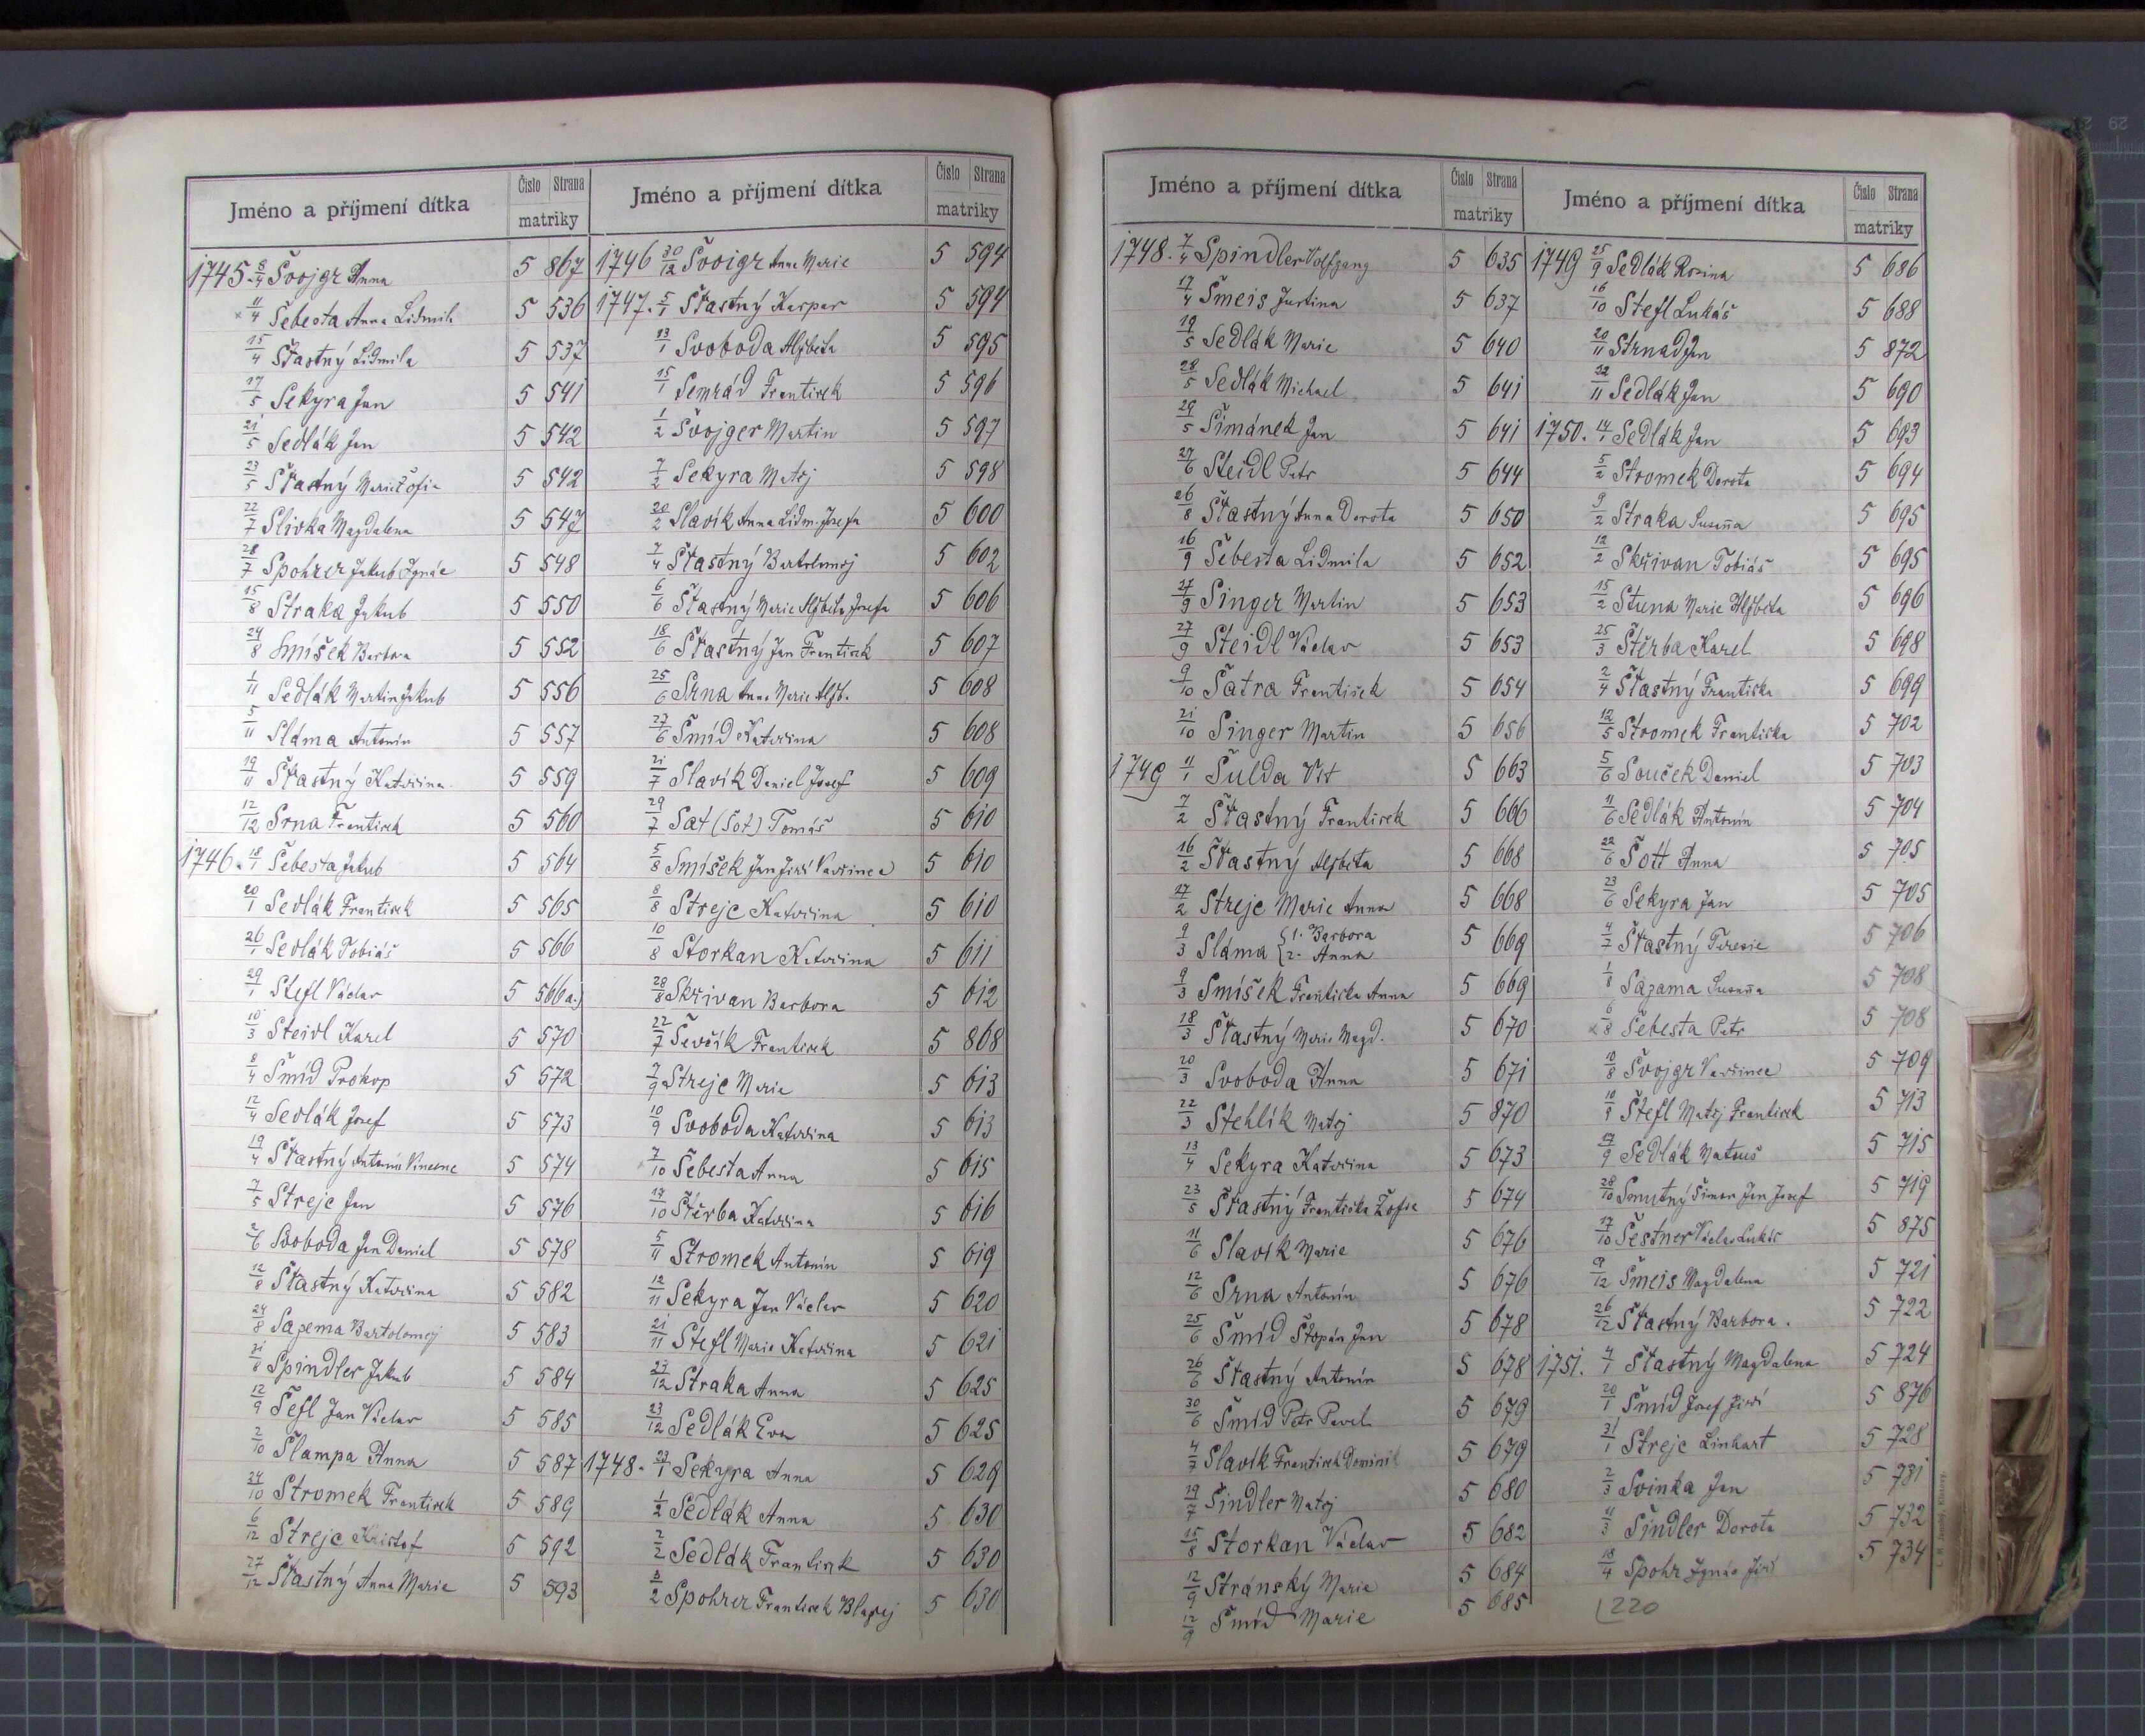 Jméno a příjmení dítka Číslo Strana matriky
1745. 8/4 Švojgr Anna 5 867
× 11/4 Šebesta Anna Lidmila 5 536
15/4 Šťastný Lidmila 5 537
17/5 Sekyra Jan 5 541
21/5 Sedlák Jan 5 542
23/5 Šťastný Marie Žofie 5 542
22/7 Slivka Magdalena 5 547
28/7 Spohrer Jakub Ignác 5 548
15/8 Straka Jakub 5 550
24/8 Smíšek Barbora 5 552
1/11 Sedlák Martin Jakub 5 556
5/11 Sláma Antonín 5 557
19/11 Šťastný Kateřina 5 559
12/12 Srna František 5 560
1746. 18/1 Šebesta Jakub 5 564
20/1 Sedlák František 5 565
26/1 Sedlák Tobiáš 5 566
29/1 Štefl Václav 5 566a.)
10/3 Steidl Karel 5 570
8/4 Šmíd Prokop 5 572
12/4 Sedlák Josef 5 573
19/4 Šťastný Antonín Vincenc 5 574
7/5 Strejc Jan 5 576
2/6 Svoboda Jan Daniel 5 578
12/8 Šťastný Kateřina 5 582
24/8 Sazema Bartolomej 5 583
31/8 Spindler Jakub 5 584
12/9 Šefl Jan Václav 5 585
2/10 Šlampa Anna 5 587
24/10 Stromek František 5 589
6/12 Strejc Kristof 5 592
27/12 Šťastný Anna Marie 5 593
Jméno a příjmení dítka Číslo Strana matriky
1746 30/12 Švoigr Anna Marie 5 594
1747. 5/1 Šťastný Kaspar 5 594
13/1 Svoboda Alžběta 5 595
15/1 Semrád František 5 596
1/2 Švojger Martin 5 597
7/2 Sekyra Matěj 5 598
20/2 Slavík Anna Lidm. Josefa 5 600
7/4 Šťastný Bartolomej 5 602
6/6 Šťastný Marie Alžběta Josefa 5 606
18/6 Šťastný Jan František 5 607
25/6 Srna Anna Marie Alžb. 5 608
27/6 Šmíd Kateřina 5 608
21/7 Slavík Daniel Josef 5 609
29/7 Sat (Šot) Tomáš 5 610
5/8 Smíšek Jan Jiří Vavřinec 5 610
8/8 Strejc Kateřina 5 610
10/8 Štorkan Kateřina 5 611
28/8 Skřivan Barbora 5 612
22/7 Ševčík František 5 868
7/9 Strejc Marie 5 613
10/9 Svoboda Kateřina 5 613
7/10 Šebesta Anna 5 615
19/10 Štěrba Kateřina 5 616
5/11 Stromek Antonín 5 619
12/11 Sekyra Jan Václav 5 620
21/11 Štefl Marie Kateřina 5 621
27/12 Straka Anna 5 625
23/12 Sedlák Eva 5 625
1748. 27/1 Sekyra Anna 5 629
1/2 Sedlák Anna 5 630
2/2 Sedlák František 5 630
3/2 Spohrer František Blažej 5 630
Jméno a příjmení dítka Číslo Strana matriky
1748. 7/4 Spindler Wolfgang 5 635
17/4 Šmeis Justina 5 637
19/5 Sedlák Marie 5 640
28/5 Sedlák Michael 5 641
29/5 Šimánek Jan 5 641
27/6 Steidl Petr 5 644
26/8 Šťastný Anna Dorota 5 650
16/9 Šebesta Lidmila 5 652
27/9 Singer Martin 5 653
27/9 Steidl Václav 5 653
9/10 Šatra František 5 654
21/10 Singer Martin 5 656
1749 11/1 Šulda Vít 5 663
7/2 Šťastný František 5 666
16/2 Šťastný Alžběta 5 668
17/2 Strejc Marie Anna 5 668
9/3 Sláma { 1. Barbora
2. Anna 5 669
9/3 Smíšek Františka Anna 5 669
18/3 Šťastný Marie Magd. 5 670
20/3 Svoboda Anna 5 671
22/3 Stehlík Matěj 5 870
13/4 Sekyra Kateřina 5 673
23/5 Šťastný Františka Žofie 5 674
11/6 Slavík Marie 5 676
12/6 Srna Antonín 5 676
25/6 Šmíd Štěpán Jan 5 678
26/6 Šťastný Antonín 5 678
30/6 Šmíd Petr Pavel 5 679
4/7 Slavík František Dominik 5 679
19/7 Šindler Matěj 5 680
15/8 Štorkan Václav 5 682
12/9 Stránský Marie 5 684
12/9 Šmíd Marie 5 685
Jméno a příjmení dítka Číslo Strana matriky
1749 25/9 Sedlák Rozina 5 686
16/10 Štefl Lukáš 5 688
20/11 Strnad Jan 5 872
22/11 Sedlák Jan 5 690
1750. 14/1 Sedlák Jan 5 693
5/2 Stromek Dorota 5 694
9/2 Straka Susana 5 695
12/2 Skřivan Tobiáš 5 695
15/2 Marie Alžběta 5 696
25/3 Štěrba Karel 5 698
2/4 Šťastný Františka 5 699
12/5 Stromek Františka 5 702
5/6 Souček Daniel 5 703
11/6 Sedlák Antonín 5 704
22/6 Šott Anna 5 705
23/6 Sekyra Jan 5 705
4/7 Šťastný Terezie 5 706
1/8 Sazama Susana 5 708
× 6/8 Šebesta Petr 5 708
10/8 Švojgr Vavřinec 5 709
10/9 Štefl Matěj František 5 713
21/9 Sedlák Matouš 5 715
28/10 Smutný Šimon Jan Josef 5 719
17/10 Šestner Václav Lukáš 5 875
9/12 Šmeis Magdalena 5 721
26/12 Šťastný Barbora. 5 722
1751. 4/1 Šťastný Magdalena 5 724
20/1 Šmíd Josef Jiří 5 876
31/1 Strejc Linhart 5 728
2/3 Svinka Jan 5 731
11/3 Šindler Dorota 5 732
18/4 Spohr Ignác Jiří 5 734
220